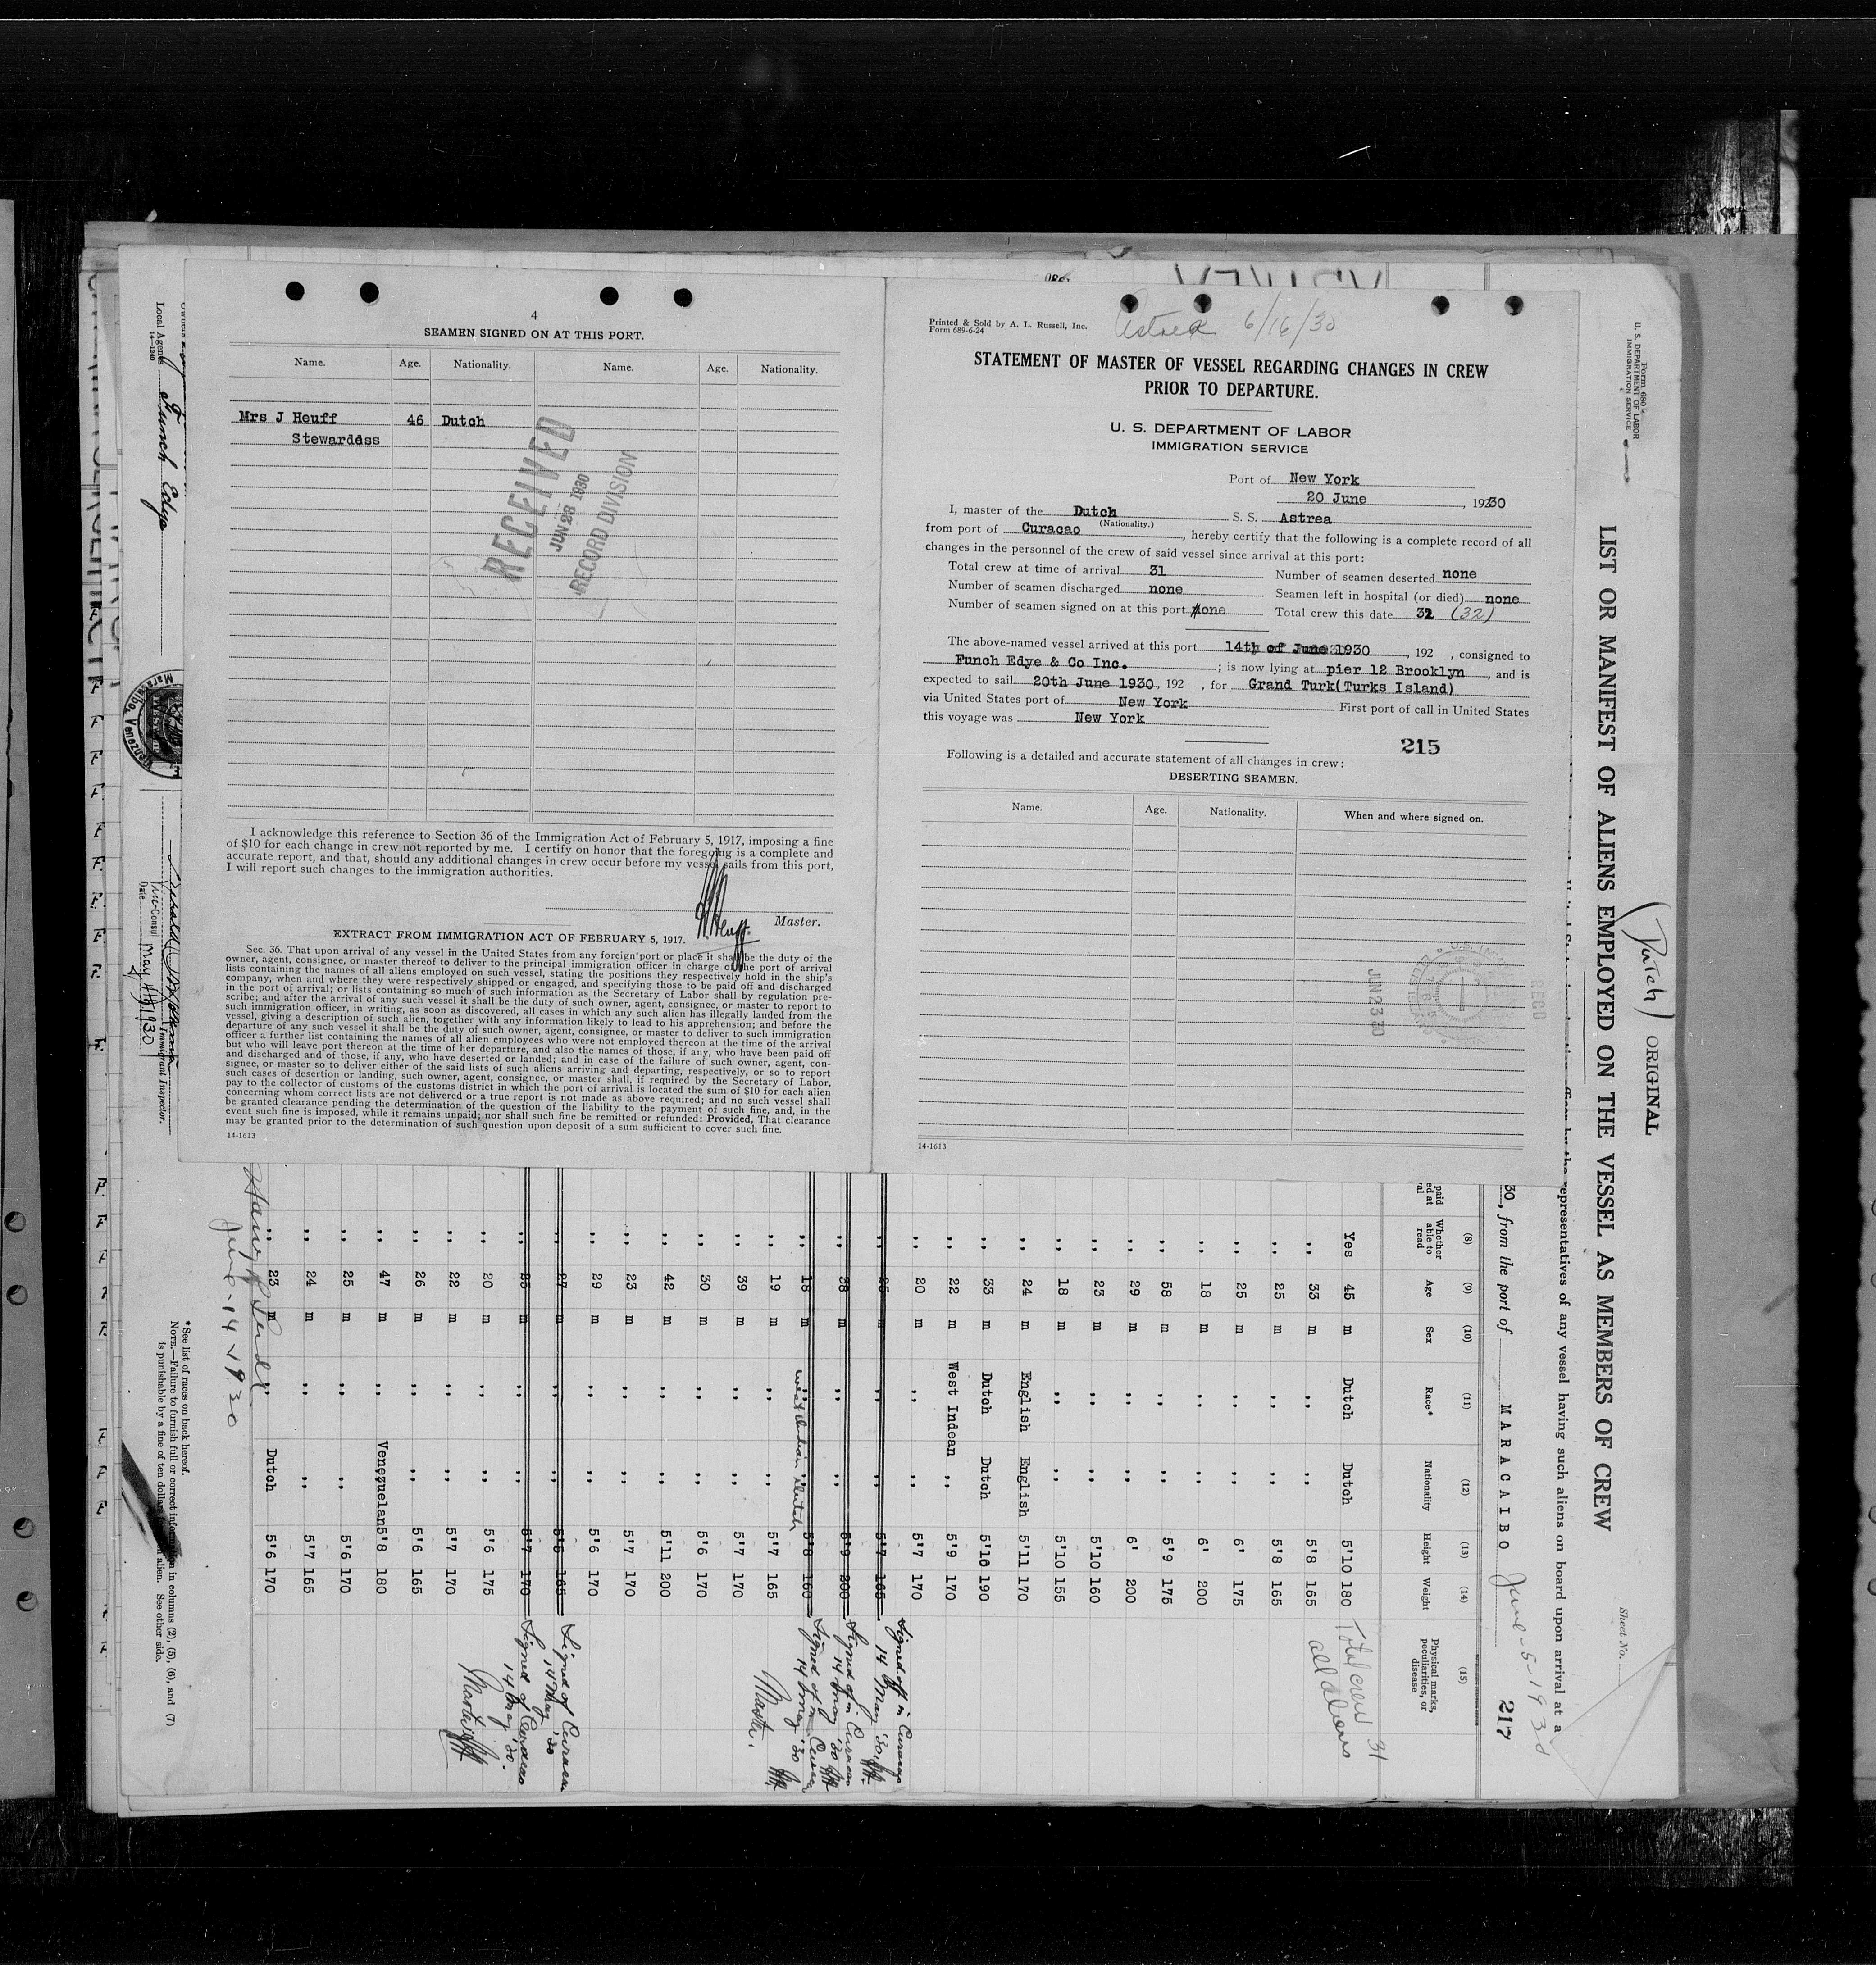 4
SEAMEN SIGNED ON AT THIS PORT.
Name. Age. Nationality. Name. Age. Nationality.
Mrs J Heuff 46 Dutch
Stewardess
RECEIVED
JUN 28 1930
RECORD DIVISION
I acknowledge this reference to Section 36 of the Immigration Act of February 5, 1917, imposing a fine
of $10 for each change in crew not reported by me. I certify on honor that the foregoing is a complete and
accurate report, and that, should any additional changes in crew occur before my vessel sails from this port,
I will report such changes to the immigration authorities.
Master.
EXTRACT FROM IMMIGRATION ACT OF FEBRUARY 5, 1917.
Sec. 36. That upon arrival of any vessel in the United States from any foreign port or place it shall be the duty of the
owner, agent, consignee, or master thereof to deliver to the principal immigration officer in charge of the port of arrival
lists containing the names of all aliens employed on such vessel, stating the positions they respectively hold in the ship's
company, when and where they were respectively shipped or engaged, and specifying those to be paid off and discharged
in the port of arrival; or lists containing so much of such information as the Secretary of Labor shall by regulation pre-
scribe; and after the arrival of any such vessel it shall be the duty of such owner, agent, consignee, or master to report to
such immigration officer, in writing, as soon as discovered, all cases in which any such alien has illegally landed from the
vessel, giving a description of such alien, together with any information likely to lead to his apprehension; and before the
departure of any such vessel it shall be the duty of such owner, agent, consignee, or master to deliver to such immigration
officer a further list containing the names of all alien employees who were not employed thereon at the time of the arrival
but who will leave port thereon at the time of her departure, and also the names of those, if any, who have been paid off
and discharged and of those, if any, who have deserted or landed; and in case of the failure of such owner, agent, con-
signee, or master so to deliver either of the said lists of such aliens arriving and departing, respectively, or so to report
such cases of desertion or landing, such owner, agent, consignee, or master shall, if required by the Secretary of Labor,
pay to the collector of customs of the customs district in which the port of arrival is located the sum of $10 for each alien
concerning whom correct lists are not delivered or a true report is not made as above required; and no such vessel shall
be granted clearance pending the determination of the question of the liability to the payment of such fine, and, in the
event such fine is imposed, while it remains unpaid; nor shall such fine be remitted or refunded: Provided, That clearance
may be granted prior to the determination of such question upon deposit of a sum sufficient to cover such fine.
14-1613
Printed & Sold by A. L. Russell, Inc.
Form 689-6-24
Astrea 6/16/30
STATEMENT OF MASTER OF VESSEL REGARDING CHANGES IN CREW
PRIOR TO DEPARTURE.
U. S. DEPARTMENT OF LABOR
IMMIGRATION SERVICE
Port of New York
20 June, 19230
I, master of the Dutch S. S. Astrea
(Nationality.)
from port of Curacao, hereby certify that the following is a complete record of all
changes in the personnel of the crew of said vessel since arrival at this port:
Total crew at time of arrival 31 Number of seamen deserted none
Number of seamen discharged none Seamen left in hospital (or died) none
Number of seamen signed on at this port one Total crew this date 32 (32)
The above-named vessel arrived at this port 14th of June 1930, 192 , consigned to
Funch Edye & Co Inc. ; is now lying at pier 12 Brooklyn, and is
expected to sail 20th June 1930, 192 , for Grand Turk(Turks Island)
via United States port of New York First port of call in United States
this voyage was New York
215
Following is a detailed and accurate statement of all changes in crew:
DESERTING SEAMEN.
Name. Age. Nationality. When and where signed on.
JUN 23 30
REC'D
14-1613
Form 680
U. S. DEPARTMENT OF LABOR
IMMIGRATION SERVICE
(Dutch) ORIGINAL
LIST OR MANIFEST OF ALIENS EMPLOYED ON THE VESSEL AS MEMBERS OF CREW
Sheet No.
representatives of any vessel having such aliens on board upon arrival at a
30, from the port of MARACAIBO June-5-1930 217
(8) (9) (10) (11) (12) (13) (14) (15)
Whether able to read Age Sex Race* Nationality Height Weight Physical marks, peculiarities, or disease
Yes 45 m Dutch Dutch 5'10 180 Total crew 31
all aliens
,, 33 m ,, ,, 5'8 165
,, 25 m ,, ,, 5'8 165
,, 25 m ,, ,, 6' 175
,, 18 m ,, ,, 6' 200
,, 58 m ,, ,, 5'9 175
,, 29 m ,, ,, 6' 200
,, 23 m ,, ,, 5'10 160
,, 18 m ,, ,, 5'10 155
,, 24 m English English 5'11 170
,, 33 m Dutch Dutch 5'10 190
,, 22 m West Indean ,, 5'9 170
,, 20 m ,, ,, 5'7 170
,, 25 m ,, ,, 5'7 165 Signed off in Curacao
14 May '30
,, 38 m ,, ,, 5'9 200 Signed of in Curacao
14 May '30
,, 18 m West Indian Dutch 5'8 160 Signed of in Curacao
14 May '30
,, 19 m ,, ,, 5'7 165 Master.
,, 39 m ,, ,, 5'7 170
,, 30 m ,, ,, 5'6 170
,, 42 m ,, ,, 5'11 200
,, 23 m ,, ,, 5'7 170
,, 29 m ,, ,, 5'6 170
,, 27 m ,, ,, 5'8 165 Signed of Curacao
14 May '30
,, 23 m ,, ,, 5'7 170 Signed of Curacao
14 May '30.
,, 20 m ,, ,, 5'6 175 Master
,, 22 m ,, ,, 5'7 170
,, 26 m ,, ,, 5'6 165
,, 47 m ,, Venezuelan 5'8 180
,, 25 m ,, ,, 5'6 170
,, 24 m ,, ,, 5'7 165
,, 23 m ,, Dutch 5'6 170
June-14-1930
*See list of races on back hereof.
NOTE.—Failure to furnish full or correct information in columns (2), (5), (6), and (7)
is punishable by a fine of ten dollars for each alien. See other side.
Local Agents Funch Edye
14-1240
Maracaibo, Venezuela
Immigrant Inspector.
Vice-Consul
Date